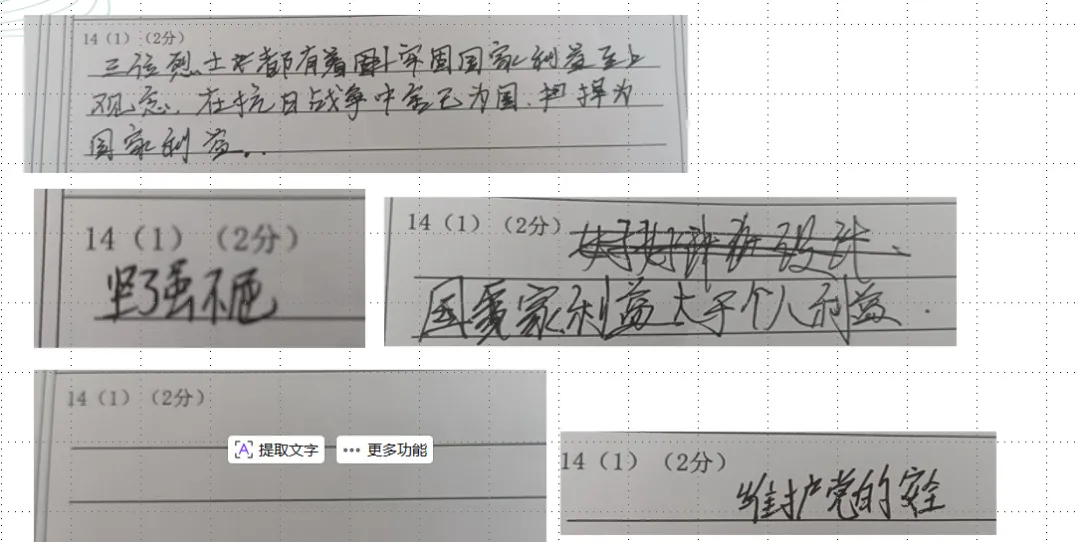 14（1）（2分）
三位烈士都有着牢固国家利益至上
观念，在抗日战争中舍己为国，捍为
国家利益。
14（1）（2分）
坚强不屈
14（1）（2分）
国家利益大于个人利益.
14（1）（2分）
提取文字 ··· 更多功能
14（1）（2分）
维护党的安全